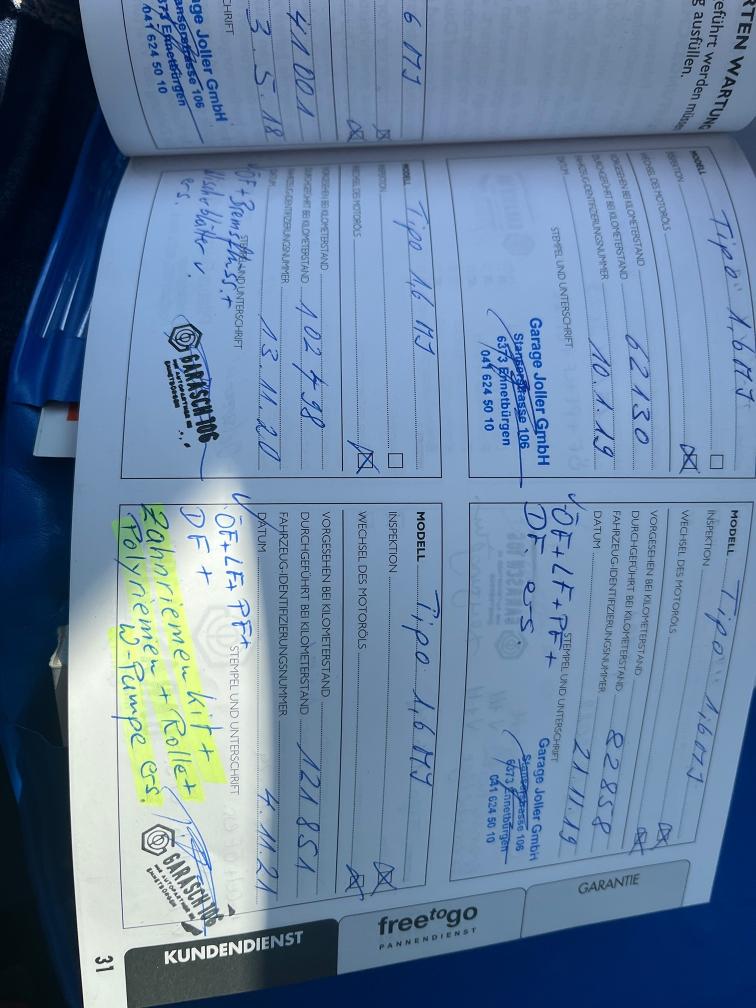 RTEN WARTUNG
eführt werden müssen
g ausfüllen.
6 MJ
41001
3.5.18
SCHRIFT
age Joller GmbH
anserstrasse 106
6373 Ennetbürgen
041 624 50 10
MODELL Tipo 1,6 MJ
INSPEKTION
WECHSEL DES MOTORÖLS
VORGESEHEN BEI KILOMETERSTAND
DURCHGEFÜHRT BEI KILOMETERSTAND 62130
FAHRZEUG-IDENTIFIZIERUNGSNUMMER
DATUM 10.1.19
STEMPEL UND UNTERSCHRIFT
Garage Joller GmbH
Stanserstrasse 106
6373 Ennetbürgen
041 624 50 10
MODELL Tipo 1,6 MJ
INSPEKTION
WECHSEL DES MOTORÖLS
VORGESEHEN BEI KILOMETERSTAND
DURCHGEFÜHRT BEI KILOMETERSTAND 82858
FAHRZEUG-IDENTIFIZIERUNGSNUMMER
DATUM 21.11.19
STEMPEL UND UNTERSCHRIFT
ÖF+LF+PF+
DF. ers.
Garage Joller GmbH
Stanserstrasse 106
6373 Ennetbürgen
041 624 50 10
MODELL Tipo 1,6 MJ
INSPEKTION
WECHSEL DES MOTORÖLS
VORGESEHEN BEI KILOMETERSTAND
DURCHGEFÜHRT BEI KILOMETERSTAND 102798
FAHRZEUG-IDENTIFIZIERUNGSNUMMER
DATUM 13.11.20
STEMPEL UND UNTERSCHRIFT
ÖF+Bremsflüss.+
Wischerblätter v.
ers.
GARASCH 106
IHR AUTOPARTNER IN
ENNETBÜRGEN
MODELL Tipo 1,6 MJ
INSPEKTION
WECHSEL DES MOTORÖLS
VORGESEHEN BEI KILOMETERSTAND
DURCHGEFÜHRT BEI KILOMETERSTAND 121851
FAHRZEUG-IDENTIFIZIERUNGSNUMMER
DATUM 4.11.21
STEMPEL UND UNTERSCHRIFT
ÖF+LF+PF+
DF+
Zahnriemenkit+
Polyriemen + Rolle+
W-Pumpe ers.
GARASCH 106
IHR AUTOPARTNER IN
ENNETBÜRGEN
GARANTIE
freetogo
PANNENDIENST
KUNDENDIENST
31